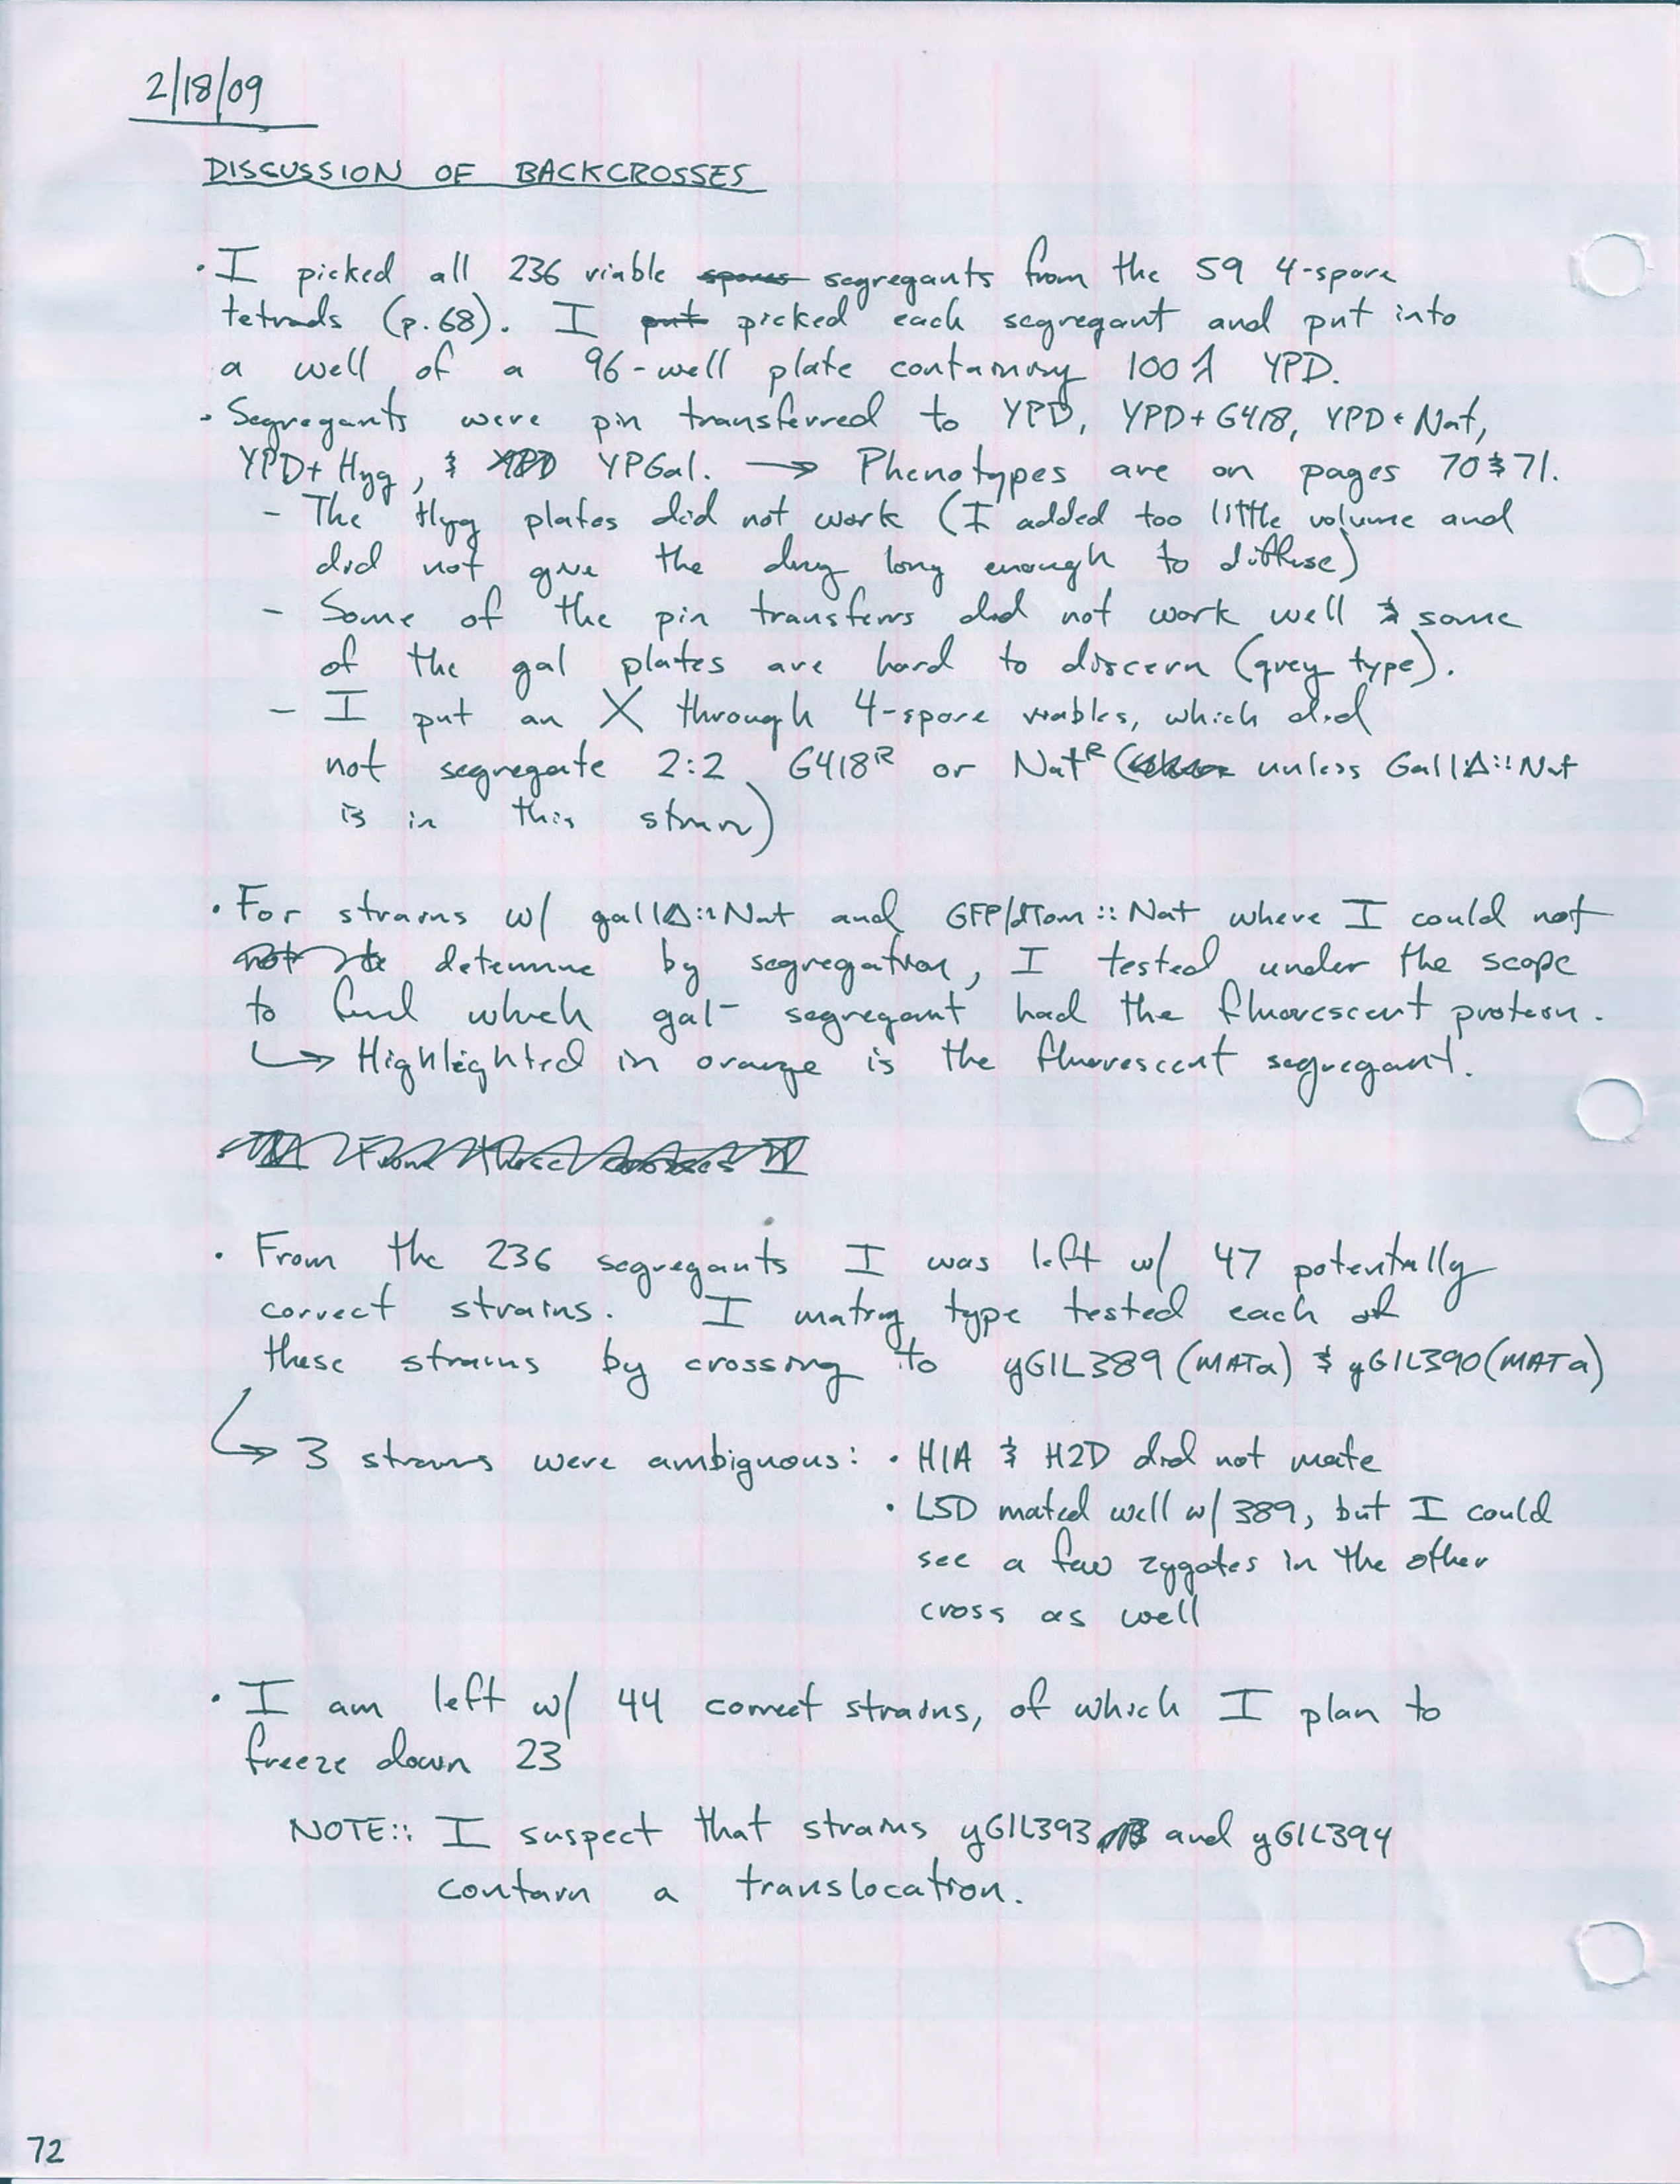 2/18/09
DISCUSSION OF BACKCROSSES
· I picked all 236 viable spores segregants from the 59 4-spore
tetrads (p.68). I put picked each segregant and put into
a well of a 96-well plate containing 100 λ YPD.
· Segregants were pin transferred to YPD, YPD+G418, YPD+Nat,
YPD+Hyg, & YPD YPGal. → Phenotypes are on pages 70 & 71.
- The Hyg plates did not work (I added too little volume and
did not give the drug long enough to diffuse)
- Some of the pin transfers did not work well & some
of the gal plates are hard to discern (grey type).
- I put an X through 4-spore viables, which did
not segregate 2:2 G418ᴿ or Natᴿ ( unless Gal1Δ::Nat
is in this strain)
· For strains w/ gal1Δ::Nat and GFP/dTom::Nat where I could not
not to determine by segregation, I tested under the scope
to find which gal⁻ segregant had the fluorescent protein.
↳ Highlighted in orange is the fluorescent segregant.
From these crosses I
· From the 236 segregants I was left w/ 47 potentially
correct strains. I mating type tested each of
these strains by crossing to yGIL389 (MATa) & yGIL390 (MATα)
↳ 3 strains were ambiguous: · H1A & H2D did not mate
· L5D mated well w/ 389, but I could
see a few zygotes in the other
cross as well
· I am left w/ 44 correct strains, of which I plan to
freeze down 23
NOTE:: I suspect that strains yGIL393 and yGIL394
contain a translocation.
72